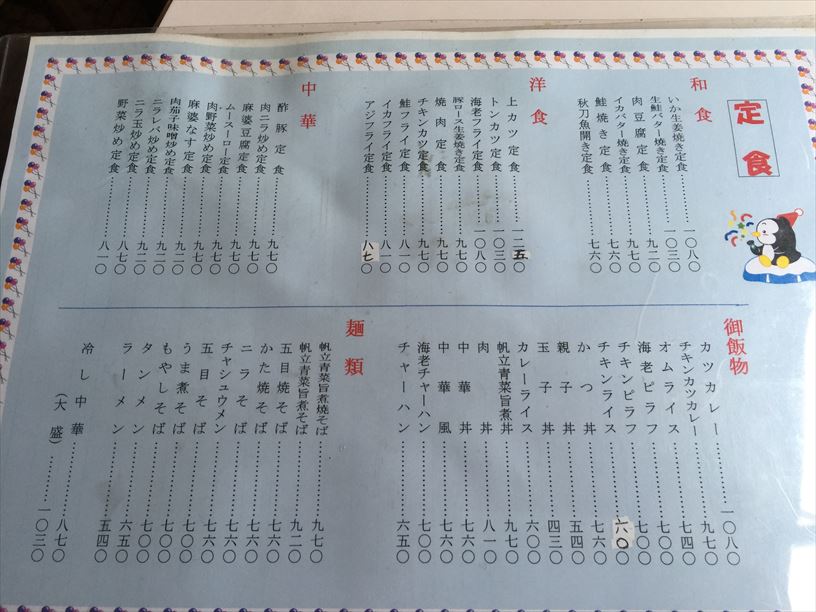 定食
和食
いか生姜焼き定食………一〇八〇
生鮭バター焼き定食………一〇三〇
肉豆腐定食………九二〇
イカバター焼き定食………九七〇
鮭焼き定食………七六〇
秋刀魚開き定食………七六〇
洋食
上カツ定食………一二五〇
トンカツ定食………一〇三〇
海老フライ定食………一〇八〇
豚ロース生姜焼き定食………九七〇
焼肉定食………九七〇
チキンカツ定食………九七〇
鮭フライ定食………八一〇
イカフライ定食………八一〇
アジフライ定食………八七〇
中華
酢豚定食………九七〇
肉ニラ炒め定食………九七〇
麻婆豆腐定食………九七〇
ムースーロー定食………九七〇
肉野菜炒め定食………九七〇
麻婆なす定食………九二〇
肉茄子味噌炒め定食………九二〇
ニラレバ炒め定食………九二〇
ニラ玉炒め定食………八七〇
野菜炒め定食………八一〇
御飯物
カツカレー………一〇八〇
チキンカツカレー………九七〇
オムライス………七四〇
海老ピラフ………七六〇
チキンピラフ………七〇〇
チキンライス………六〇〇
かつ丼………七六〇
親子丼………五四〇
玉子丼………四三〇
カレーライス………六〇〇
帆立青菜旨煮丼………九七〇
肉丼………八一〇
中華丼………七六〇
中華風………七六〇
海老チャーハン………七〇〇
チャーハン………六五〇
麺類
帆立青菜旨煮焼そば………九七〇
帆立青菜旨煮そば………九二〇
五目焼そば………七六〇
かた焼そば………七六〇
ニラそば………七六〇
チャシュウメン………七六〇
五目そば………七〇〇
うま煮そば………七〇〇
もやしそば………七〇〇
タンメン………六五〇
ラーメン………五四〇
冷し中華………八七〇
（大盛）………一〇三〇